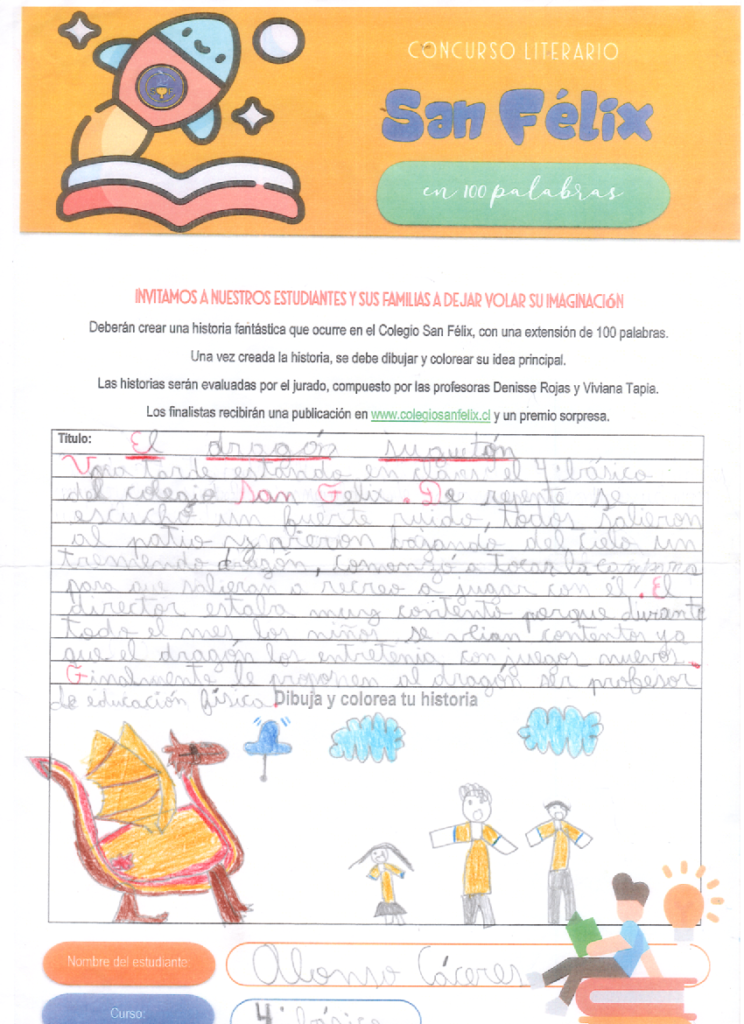 CONCURSO LITERARIO
San Félix
en 100 palabras
INVITAMOS A NUESTROS ESTUDIANTES Y SUS FAMILIAS A DEJAR VOLAR SU IMAGINACIÓN
Deberán crear una historia fantástica que ocurre en el Colegio San Félix, con una extensión de 100 palabras.
Una vez creada la historia, se debe dibujar y colorear su idea principal.
Las historias serán evaluadas por el jurado, compuesto por las profesoras Denisse Rojas y Viviana Tapia.
Los finalistas recibirán una publicación en www.colegiosanfelix.cl y un premio sorpresa.
Título: El dragón juguetón
Una tarde estando en clases el 4° básico
del colegio San Felix. De repente se
escuchó un fuerte ruido, todos salieron
al patio y vieron bajando del cielo un
tremendo dragón, comenzó a tocar la campana
para que salieran a recreo a jugar con él. El
director estaba muy contento porque durante
todo el mes los niños se veían contentos ya
que el dragón los entretenía con juegos nuevos.
Finalmente le proponen al dragón ser profesor
de educación física.
Dibuja y colorea tu historia
Nombre del estudiante: Alonso Cáceres
Curso: 4° básico